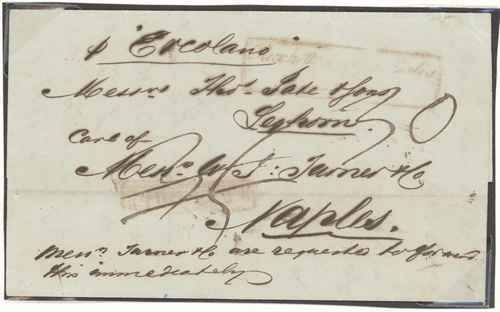 p "Ercolano"
Messrs Thos. Pate & Sons
Leghorn.
Care of
Messrs. W. J: Turner & Co
Naples.
Messrs. Turner & Co are requested to forward
this immediately